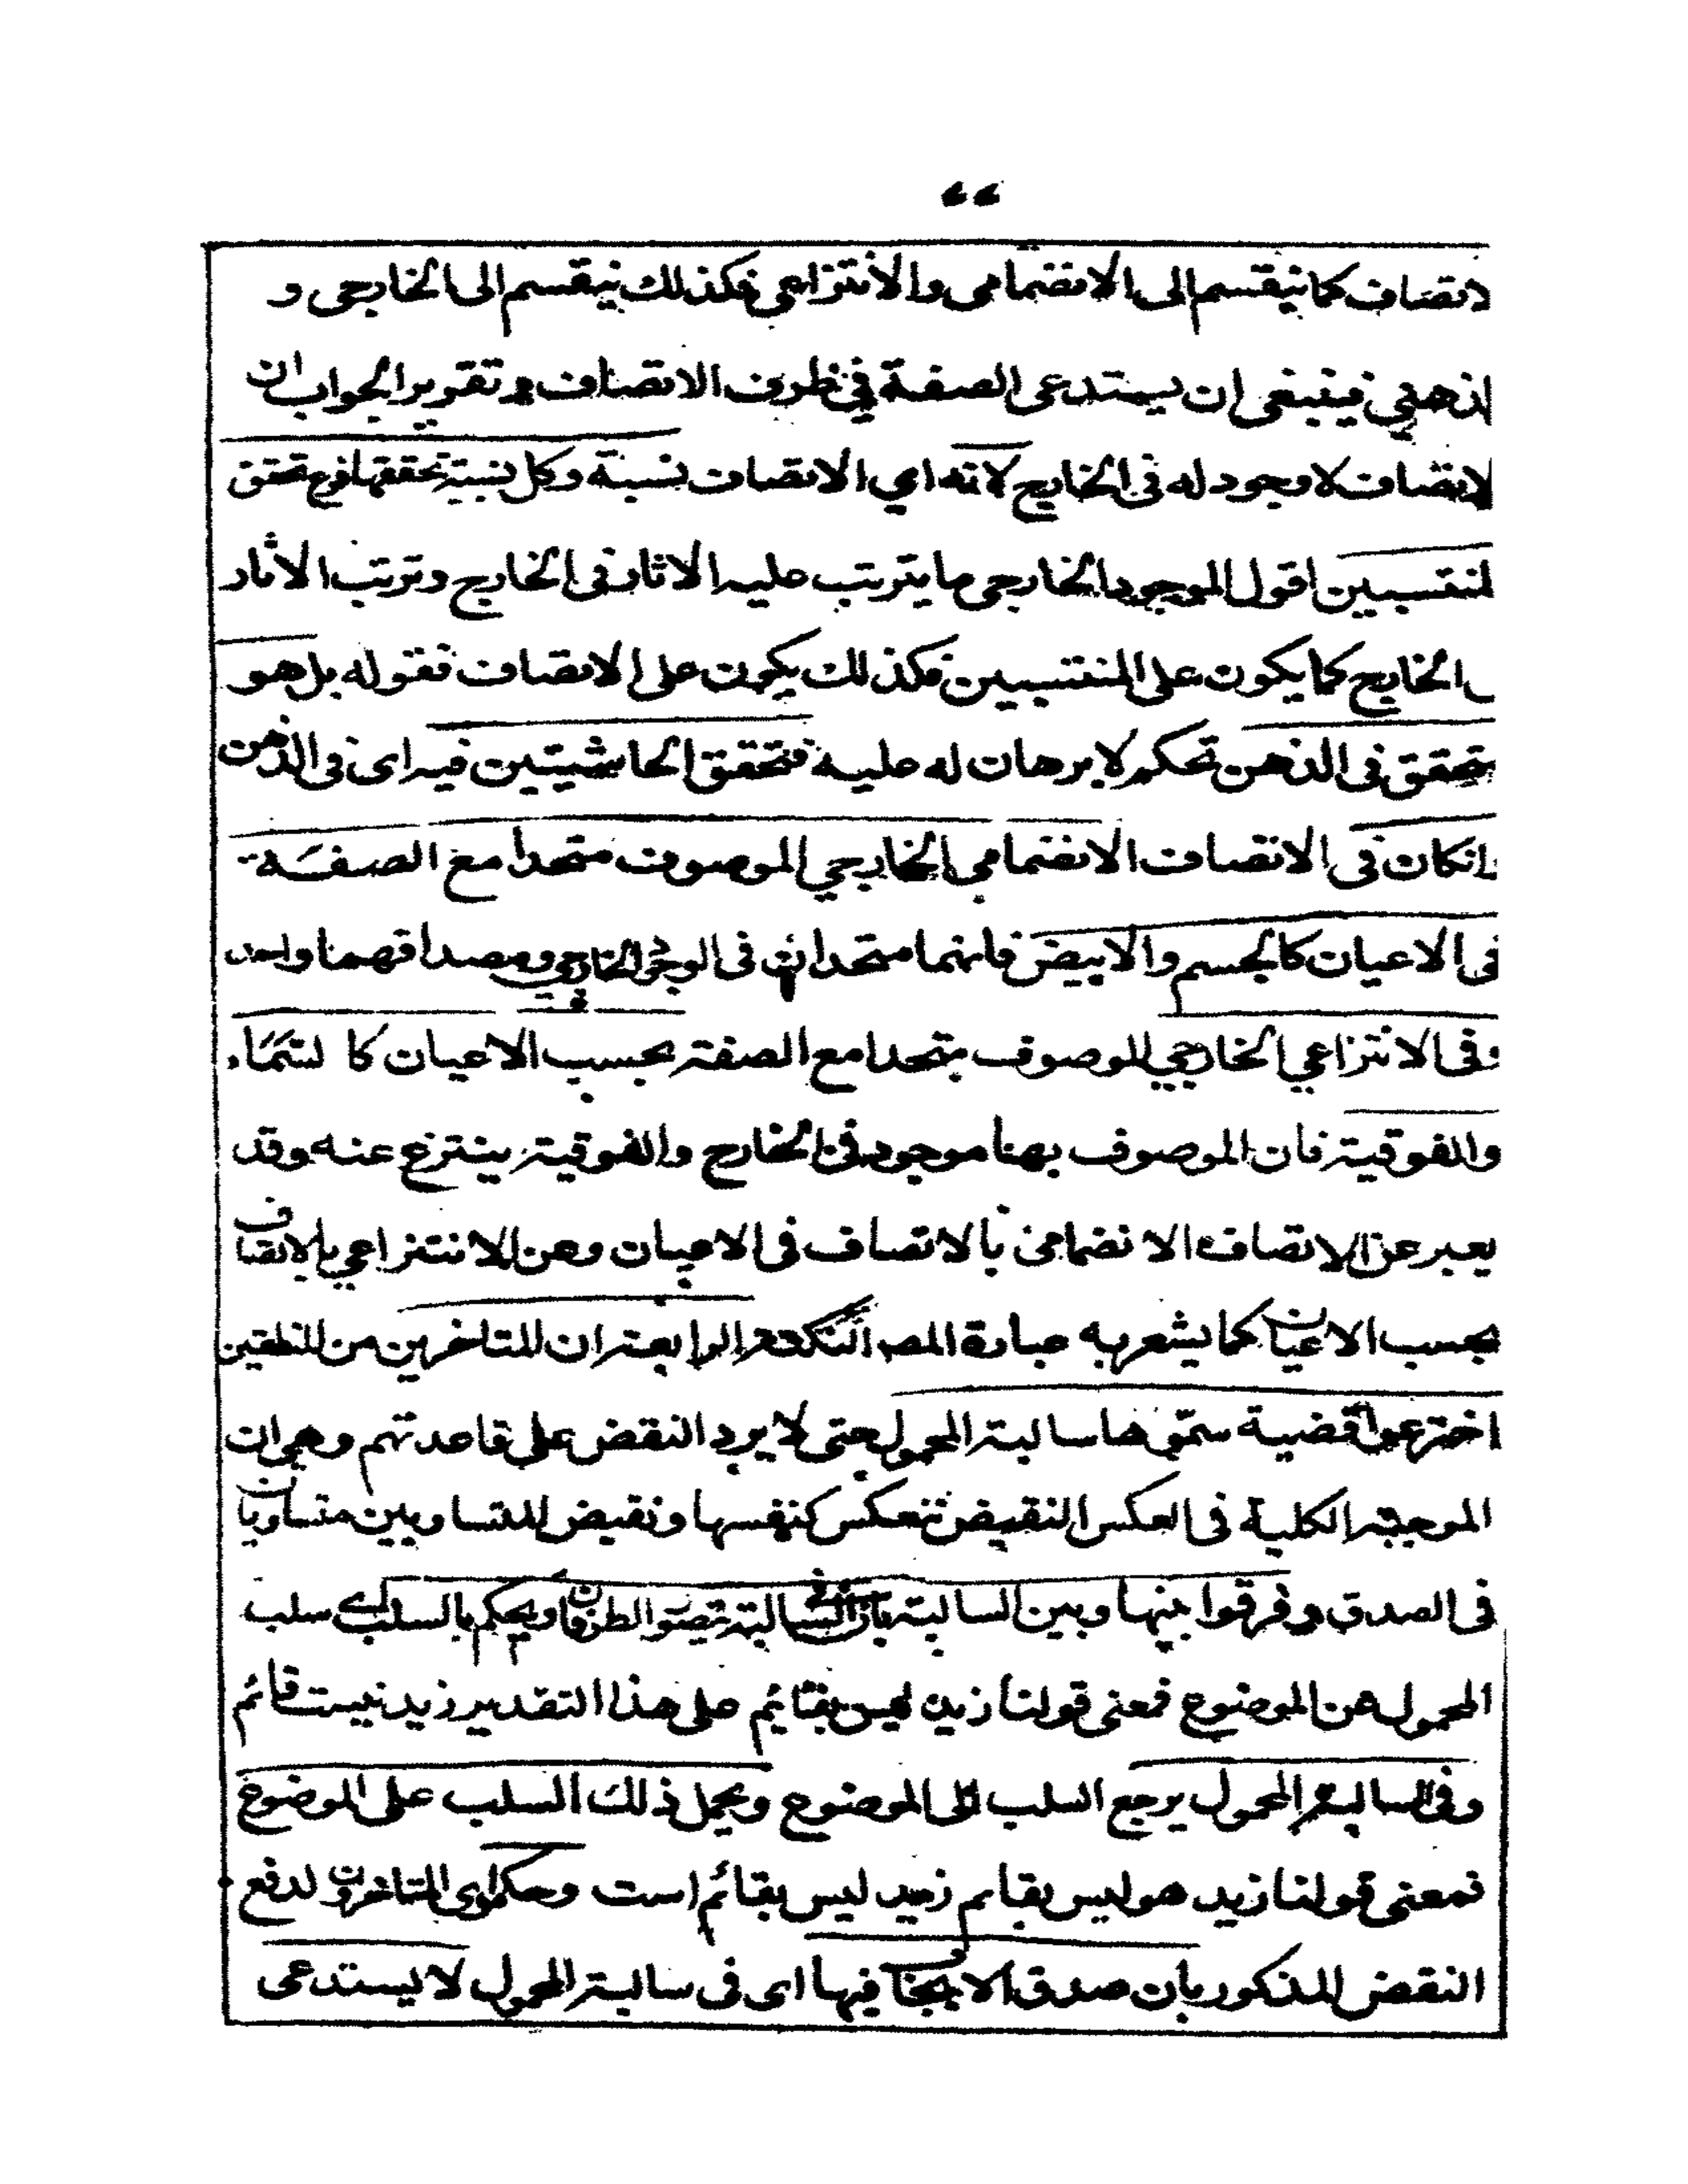 لاتصاف كما ينقسم الى الانضمامى والانتزاعى فكذلك ينقسم الى الخارجى و
الذهنى فينبغى ان يستدعى الصفة فى ظرف الاتصاف وتقرير الجواب ان
الاتصاف لا وجود له فى الخارج لانه اى الاتصاف نسبة وكل نسبة تحققها فرع تحقق
لمنتسبين اقول الموجود الخارجى ما يترتب عليه الاثار فى الخارج وترتب الاثار
الخارج كما يكون على المنتسبين فكذلك يكون على الاتصاف فقوله بل هو
متحقق فى الذهن تحكم لا برهان له عليه فتحقق الحاشيتين فيه اى فى الذهن
وانكان فى الاتصاف الانضمامى الخارجي الموصوف متحدا مع الصفة
فى الاعيان كالجسم والابيض فانهما متحدان فى الوجود الخارجي ومصداقهما واحد
وفى الانتزاعي الخارجي الموصوف متحدا مع الصفة بحسب الاعيان كا لسماء
والفوقية فان الموصوف بهنا موجود فى الخارج والفوقية ينتزع عنه وقد
يعبر عن الاتصاف الا نضمامى بالاتصاف فى الاعيان وعن الانتزاعي بالاتصاف
بحسب الاعيان كما يشعر به عبارة المصـ النكتة الرابعة ان المتاخرين من المنطقين
اخترعوا قضية سمّوها سالبة المحمول حتى لا يرد النقض على قاعدتهم وهى ان
الموجبة الكلية فى العكس النقيض تنعكس كنفسها ونقيض المتساويين متساويان
فى الصدق وفرقوا بينها وبين السالبة بان فى السالبة يتصور الطرفان ويحكم بالسلب اے سلب
المحمول عن الموضوع فمعنى قولنا زيد ليس بقائم على هذا التقدير زيد نيست قائم
وفى السالبة المحمول يرجع السلب الى الموضوع ويحمل ذلك السلب على الموضوع
فمعنى قولنا زيد هو ليس بقايم زيد ليس بقائم است وحكموا اى المتاخرون لدفع
النقض المذكور بان صدق الايجاب فيها اى فى سالبة المحمول لا يستدعى